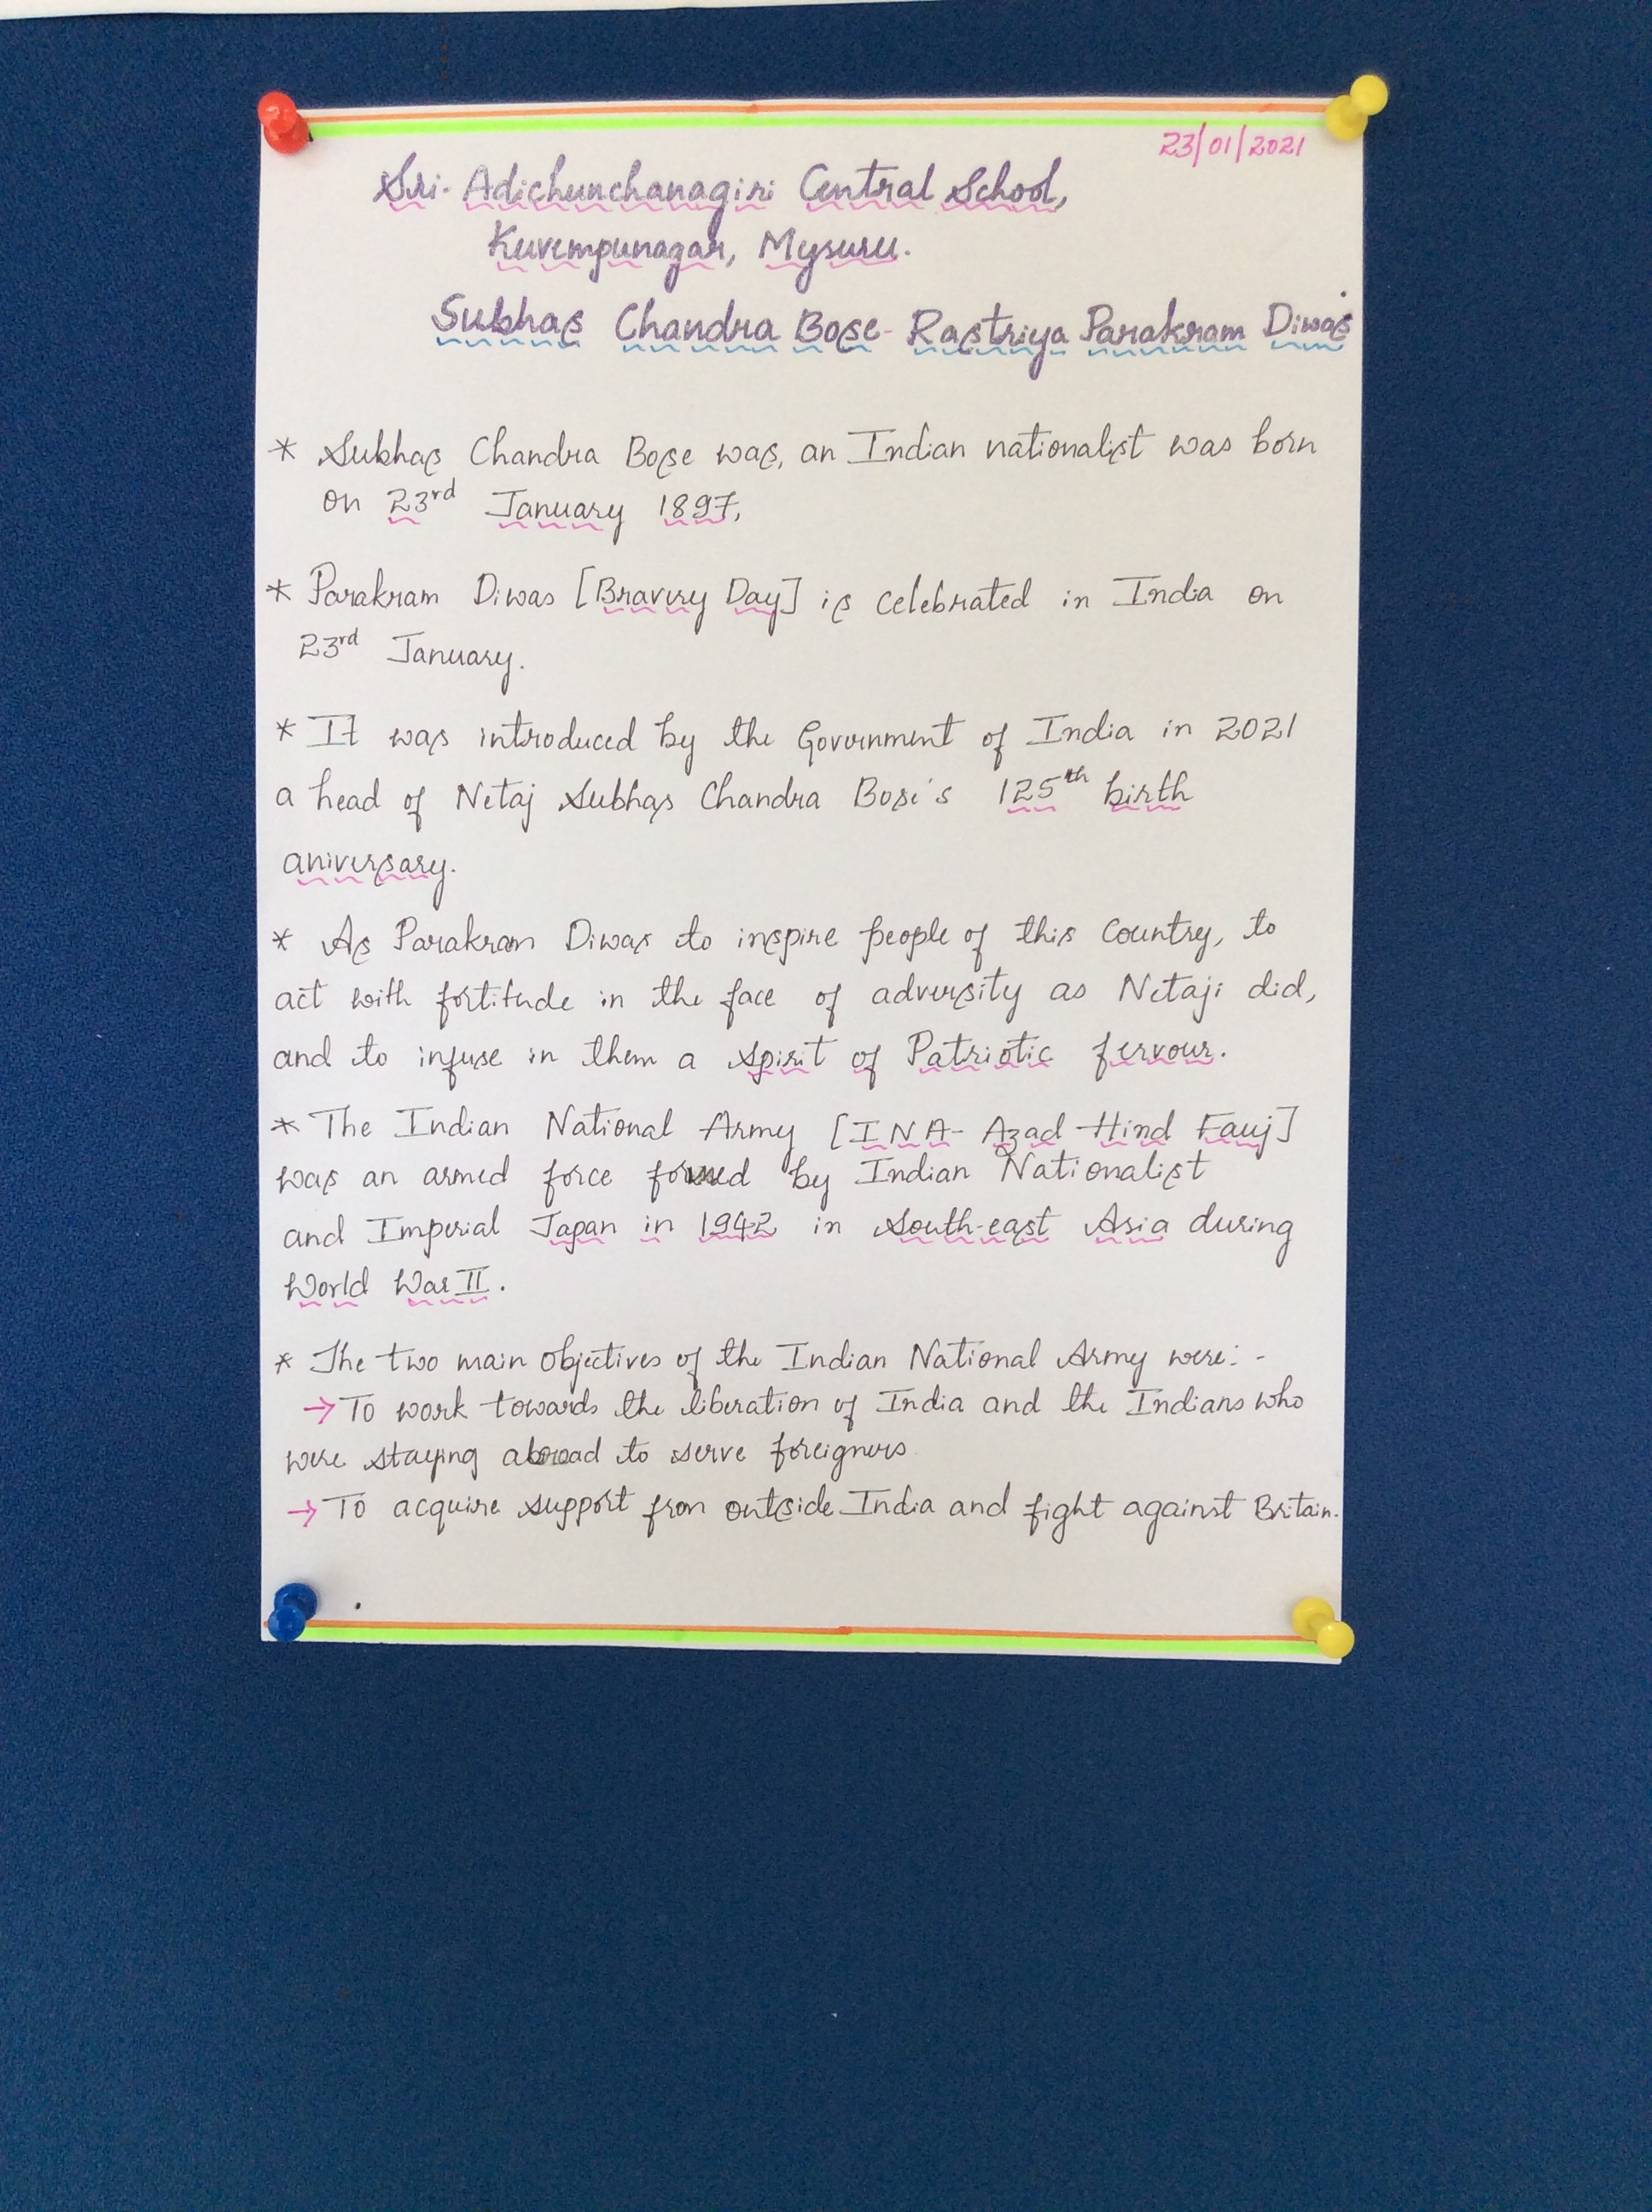 23/01/2021
Sri. Adichunchanagiri Central School,
Kuvempunagar, Mysuru.
Subhas Chandra Bose - Rastriya Parakram Diwas
* Subhas Chandra Bose was, an Indian nationalist was born
on 23rd January 1897,
* Parakram Diwas [Bravery Day] is celebrated in India on
23rd January.
* It was introduced by the Government of India in 2021
a head of Netaj Subhas Chandra Bose's 125th birth
aniversary.
* As Parakram Diwas to inspire people of this Country, to
act with fortitude in the face of adversity as Netaji did,
and to infuse in them a spirit of Patriotic fervour.
* The Indian National Army [INA- Azad Hind Fauj]
was an armed force formed by Indian Nationalist
and Imperial Japan in 1942 in South-east Asia during
World War II.
* The two main objectives of the Indian National Army were: -
→ To work towards the liberation of India and the Indians who
were staying abroad to serve foreigners
→ To acquire support from outside India and fight against Britain.